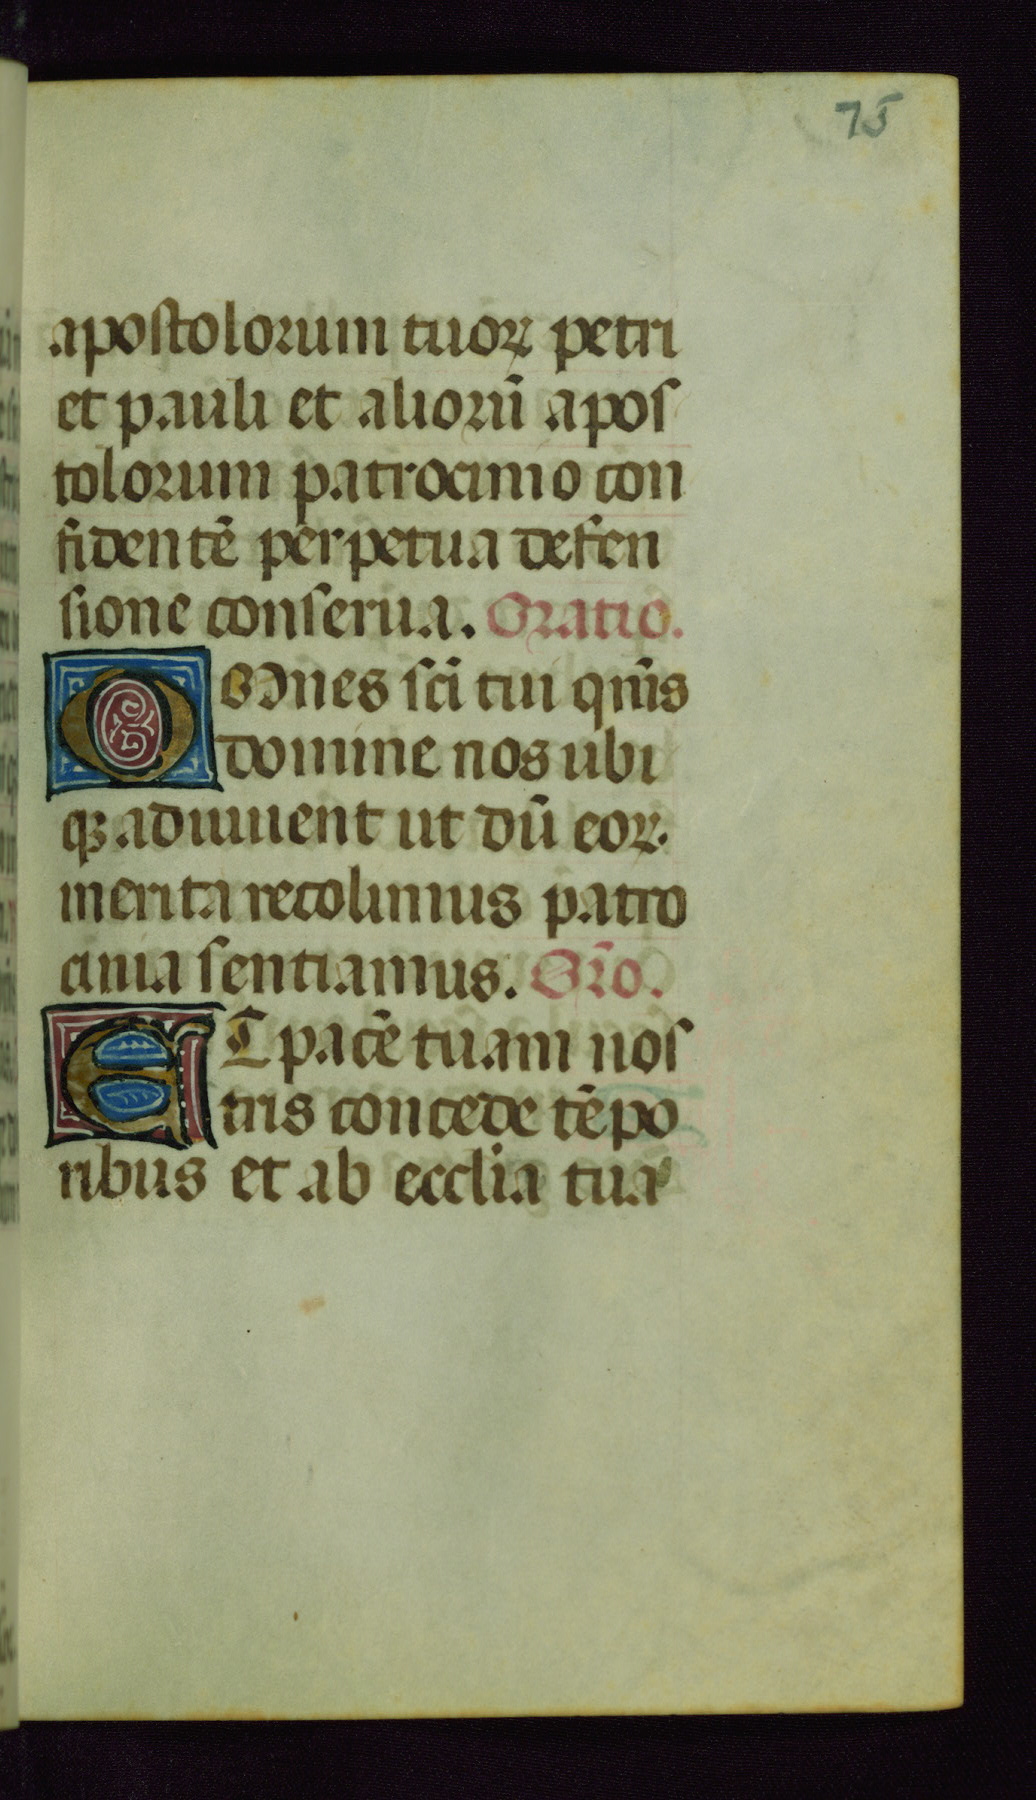 75
apostolorum tuoꝝ petri
et pauli et aliorū apos
tolorum patrocinio con
fidentē perpetua defen
sione conserua. Oratio.
OMnes sc̄i tui qm̄s
domine nos ubi
qꝫ adiuuent ut dū eoꝝ.
merita recolimus patro
cinia sentiamus. Or̄o.
ET pacē tuam nos
tris concede tēpo
ribus et ab ecclia tua